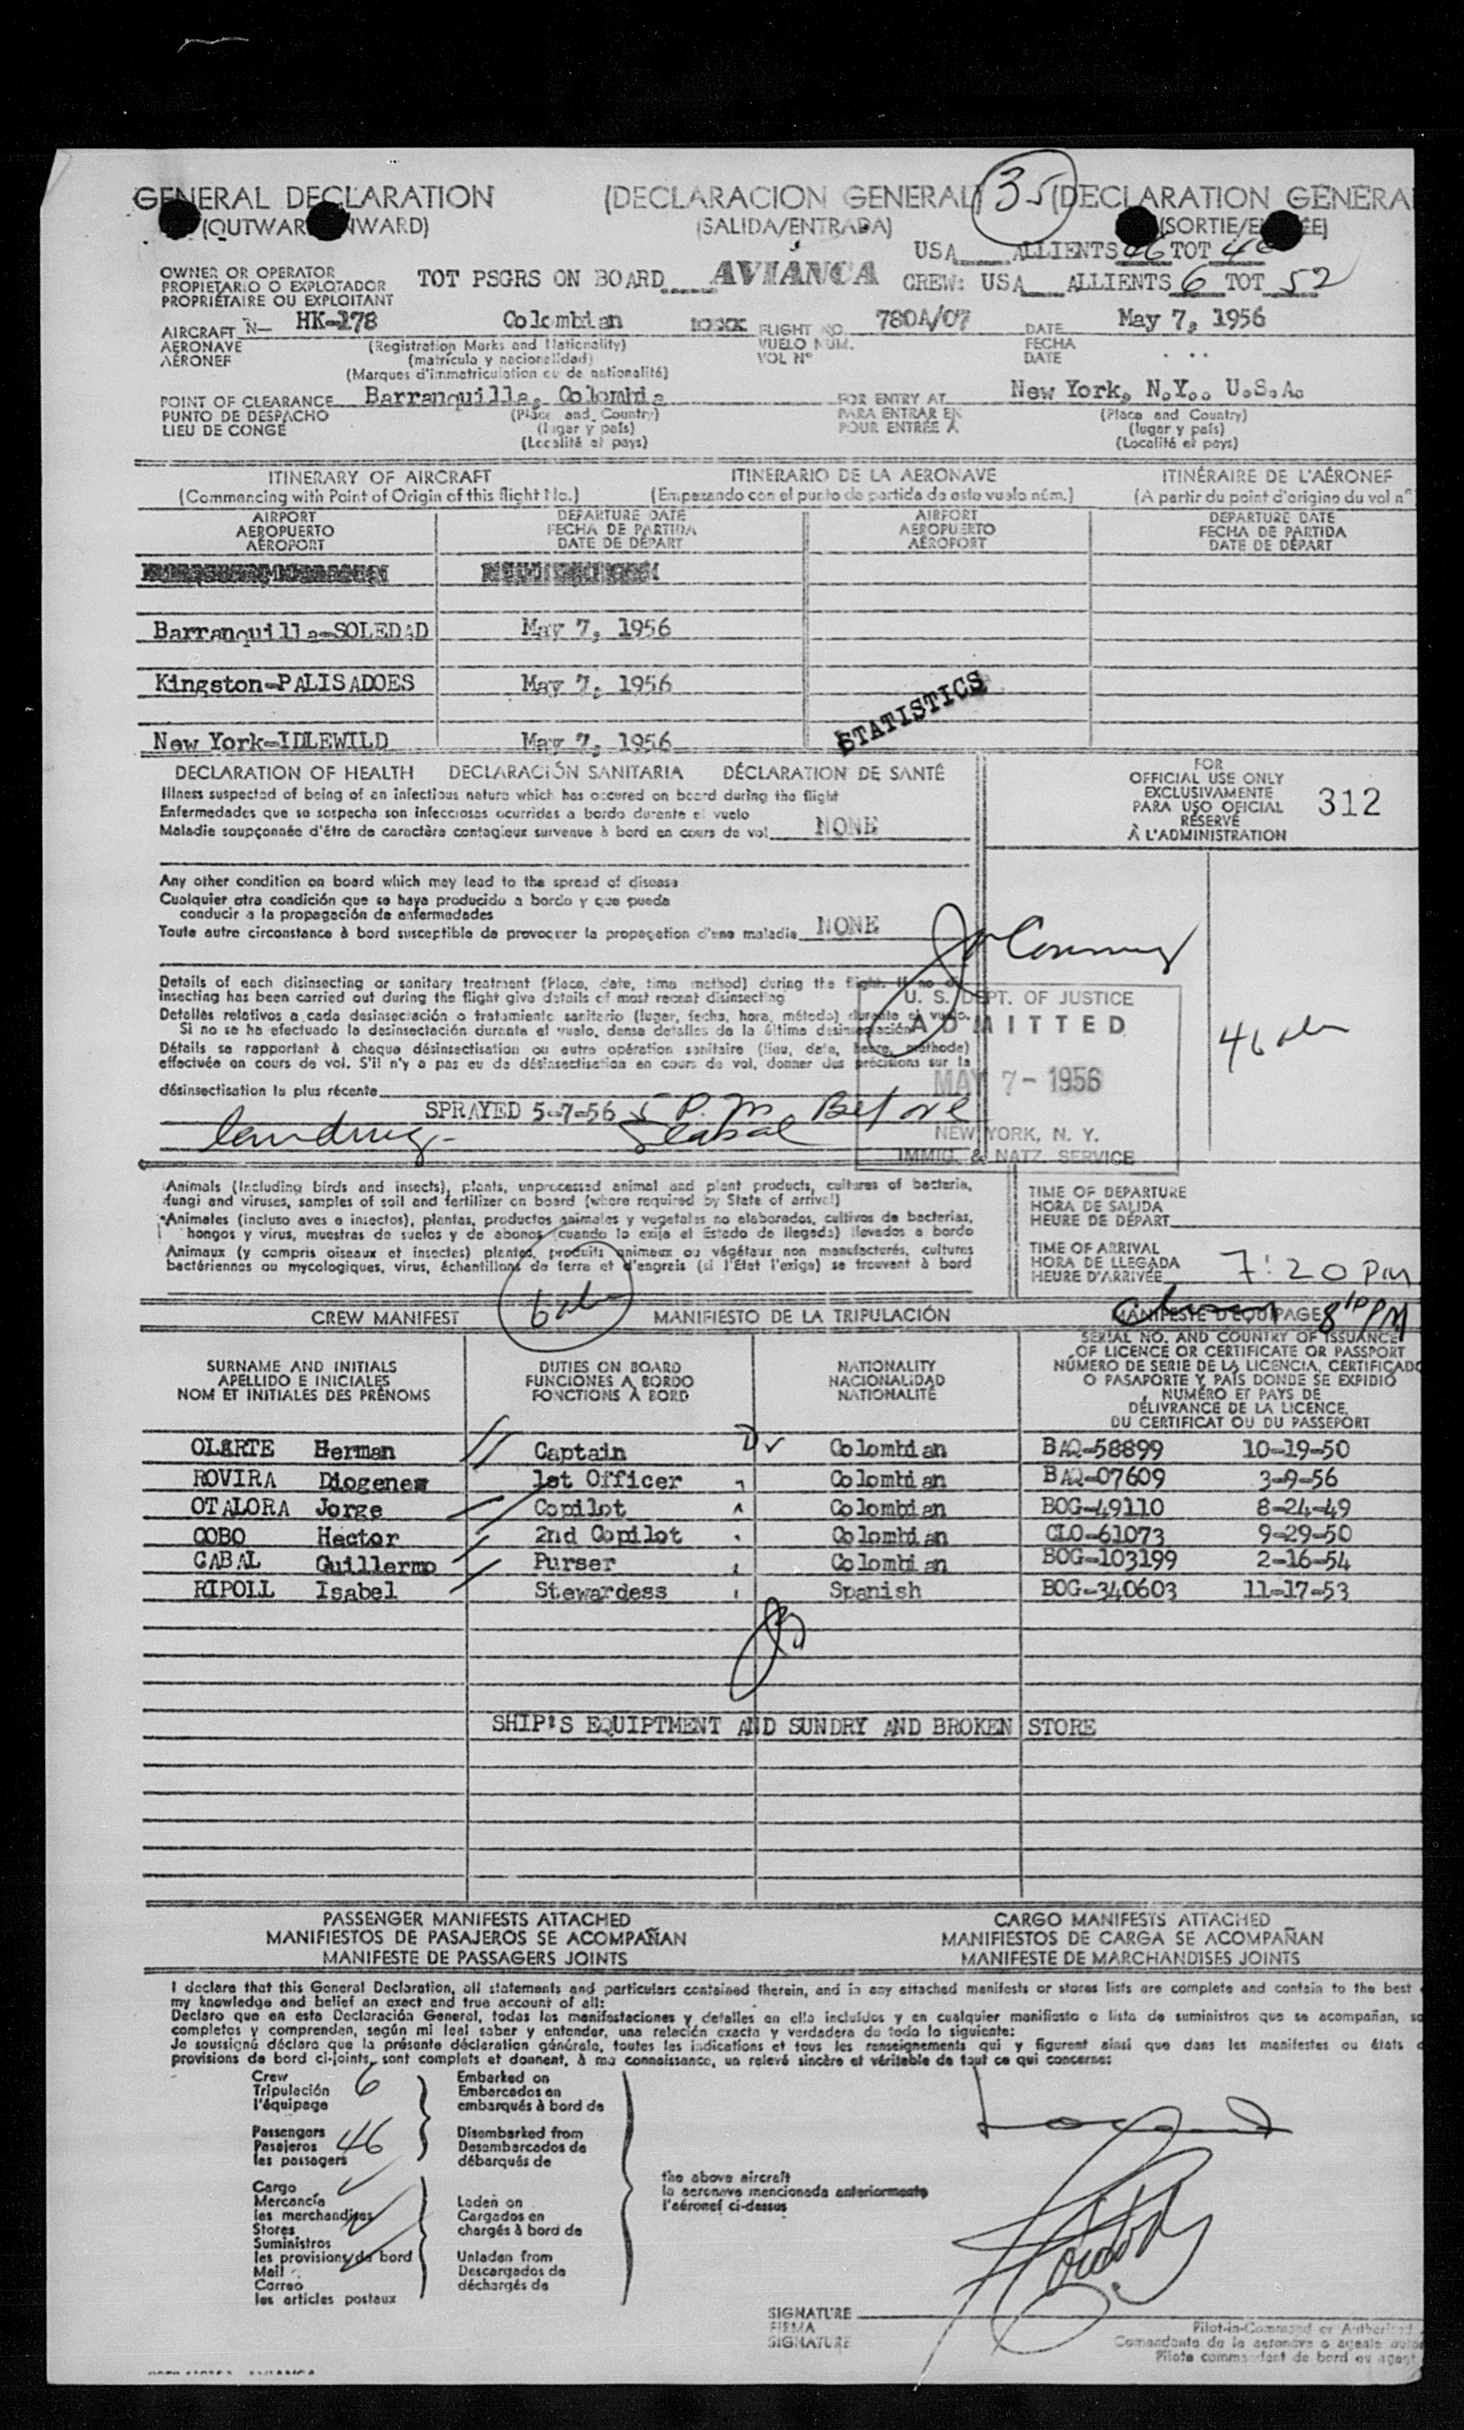 GENERAL DECLARATION (DECLARACION GENERAL) 35 (DECLARATION GENERA
(OUTWARD/INWARD) (SALIDA/ENTRADA) (SORTIE/ENTRÉE)
USA ALLIENTS 46 TOT 46
OWNER OR OPERATOR
PROPIETARIO O EXPLOTADOR TOT PSGRS ON BOARD AVIANCA CREW: USA ALLIENTS 6 TOT 52
PROPRIÉTAIRE OU EXPLOITANT
AIRCRAFT N- HK-178 Colombian FLIGHT NO. 780A/07 DATE May 7, 1956
AERONAVE (Registration Marks and Nationality) VUELO NÚM. FECHA
AÉRONEF (matrícula y nacionalidad) VOL Nº DATE
(Marques d'immatriculation ou de nationalité)
POINT OF CLEARANCE Barranquilla, Colombia FOR ENTRY AT New York, N.Y., U.S.A.
PUNTO DE DESPACHO (Place and Country) PARA ENTRAR EN (Place and Country)
LIEU DE CONGÉ (lugar y país) POUR ENTRÉE À (lugar y país)
(Localité et pays) (Localité et pays)
ITINERARY OF AIRCRAFT ITINERARIO DE LA AERONAVE ITINÉRAIRE DE L'AÉRONEF
(Commencing with Point of Origin of this flight No.) (Empezando con el punto de partida de este vuelo núm.) (A partir du point d'origine du vol nº
AIRPORT DEPARTURE DATE AIRPORT DEPARTURE DATE
AEROPUERTO FECHA DE PARTIDA AEROPUERTO FECHA DE PARTIDA
AÉROPORT DATE DE DÉPART AÉROPORT DATE DE DÉPART
Barranquilla-SOLEDAD May 7, 1956
Kingston-PALISADOES May 7, 1956
STATISTICS
New York-IDLEWILD May 7, 1956
DECLARATION OF HEALTH DECLARACIÓN SANITARIA DÉCLARATION DE SANTÉ
FOR
OFFICIAL USE ONLY
EXCLUSIVAMENTE
PARA USO OFICIAL 312
RÉSERVÉ
À L'ADMINISTRATION
Illness suspected of being of an infectious nature which has occured on board during the flight
Enfermedades que se sospecha son infecciosas ocurridas a bordo durante el vuelo
Maladie soupçonnée d'être de caractère contagieux survenue à bord en cours de vol NONE
Any other condition on board which may lead to the spread of disease
Cualquier otra condición que se haya producido a bordo y que pueda
conducir a la propagación de enfermedades
Toute autre circonstance à bord susceptible de provoquer la propagation d'une maladie NONE
Details of each disinsecting or sanitary treatment (Place, date, time method) during the flight. If no dis
insecting has been carried out during the flight give details of most recent disinsecting
Detalles relativos a cada desinsectación o tratamiento sanitario (lugar, fecha, hora, método) durante el vuelo.
Si no se ha efectuado la desinsectación durante el vuelo, dense detalles de la última desinsectación
Détails se rapportant à chaque désinsectisation ou autre opération sanitaire (lieu, date, heure, méthode)
effectuée en cours de vol. S'il n'y a pas eu de désinsectisation en cours de vol, donner des précisions sur la
désinsectisation la plus récente
U. S. DEPT. OF JUSTICE
ADMITTED
MAY 7-1956
NEW YORK, N. Y.
IMMIG. & NATZ. SERVICE
SPRAYED 5-7-56 5 P.M Before
landing-
Animals (Including birds and insects), plants, unprocessed animal and plant products, cultures of bacteria,
fungi and viruses, samples of soil and fertilizer on board (where required by State of arrival)
Animales (incluso aves e insectos), plantas, productos animales y vegetales no elaborados, cultivos de bacterias,
hongos y virus, muestras de suelos y de abonos (cuando lo exija el Estado de llegada) llevados a bordo
Animaux (y compris oiseaux et insectes) plantes, produits animaux ou végétaux non manufacturés, cultures
bactériennes ou mycologiques, virus, échantillons de terre et d'engrais (si l'État l'exige) se trouvant à bord
TIME OF DEPARTURE
HORA DE SALIDA
HEURE DE DÉPART
TIME OF ARRIVAL
HORA DE LLEGADA
HEURE D'ARRIVÉE 7:20 PM
CREW MANIFEST MANIFIESTO DE LA TRIPULACIÓN MANIFESTE D'EQUIPAGE 8 10 PM
SURNAME AND INITIALS DUTIES ON BOARD NATIONALITY
APELLIDO E INICIALES FUNCIONES A BORDO NACIONALIDAD
NOM ET INITIALES DES PRÉNOMS FONCTIONS À BORD NATIONALITÉ
SERIAL NO. AND COUNTRY OF ISSUANCE
OF LICENCE OR CERTIFICATE OR PASSPORT
NÚMERO DE SERIE DE LA LICENCIA, CERTIFICADO
O PASAPORTE Y PAÍS DONDE SE EXPIDIÓ
NUMÉRO ET PAYS DE
DÉLIVRANCE DE LA LICENCE,
DU CERTIFICAT OU DU PASSEPORT
OLARTE Herman Captain Colombian BAQ-58899 10-19-50
ROVIRA Diogenes 1st Officer Colombian BAQ-07609 3-9-56
OTALORA Jorge Copilot Colombian BOG-49110 8-24-49
COBO Hector 2nd Copilot Colombian CLO-61073 9-29-50
CABAL Guillermo Purser Colombian BOG-103199 2-16-54
RIPOLL Isabel Stewardess Spanish BOG-340603 11-17-53
SHIP'S EQUIPTMENT AND SUNDRY AND BROKEN STORE
PASSENGER MANIFESTS ATTACHED CARGO MANIFESTS ATTACHED
MANIFIESTOS DE PASAJEROS SE ACOMPAÑAN MANIFIESTOS DE CARGA SE ACOMPAÑAN
MANIFESTE DE PASSAGERS JOINTS MANIFESTE DE MARCHANDISES JOINTS
I declare that this General Declaration, all statements and particulars contained therein, and in any attached manifests or stores lists are complete and contain to the best
my knowledge and belief an exact and true account of all:
Declaro que en esta Declaración General, todas las manifestaciones y detalles en ella incluídos y en cualquier manifiesto o lista de suministros que se acompañan, so
completos y comprenden, según mi leal saber y entender, una relación exacta y verdadera de todo lo siguiente:
Je soussigné déclare que la présente déclaration générale, toutes les indications et tous les renseignements qui y figurent ainsi que dans les manifestes ou états
provisions de bord ci-joints, sont complets et donnent, à ma connaissance, un relevé sincère et véritable de tout ce qui concerne:
Crew 6 Embarked on
Tripulación Embarcados en
l'équipage embarqués à bord de
Passengers 46 Disembarked from
Pasajeros Desembarcados de
les passagers débarqués de
Cargo
Mercancía Laden on
les marchandises Cargados en
Stores chargés à bord de
Suministros
les provisions de bord Unladen from
Mail Descargados de
Correo déchargés de
les articles postaux
the above aircraft
la aeronave mencionada anteriormente
l'aéronef ci-dessus
SIGNATURE
FIRMA
SIGNATURE
Pilot-in-Command or Authorized
Comandante de la aeronave o agente auto
Pilote commandant de bord ou agent